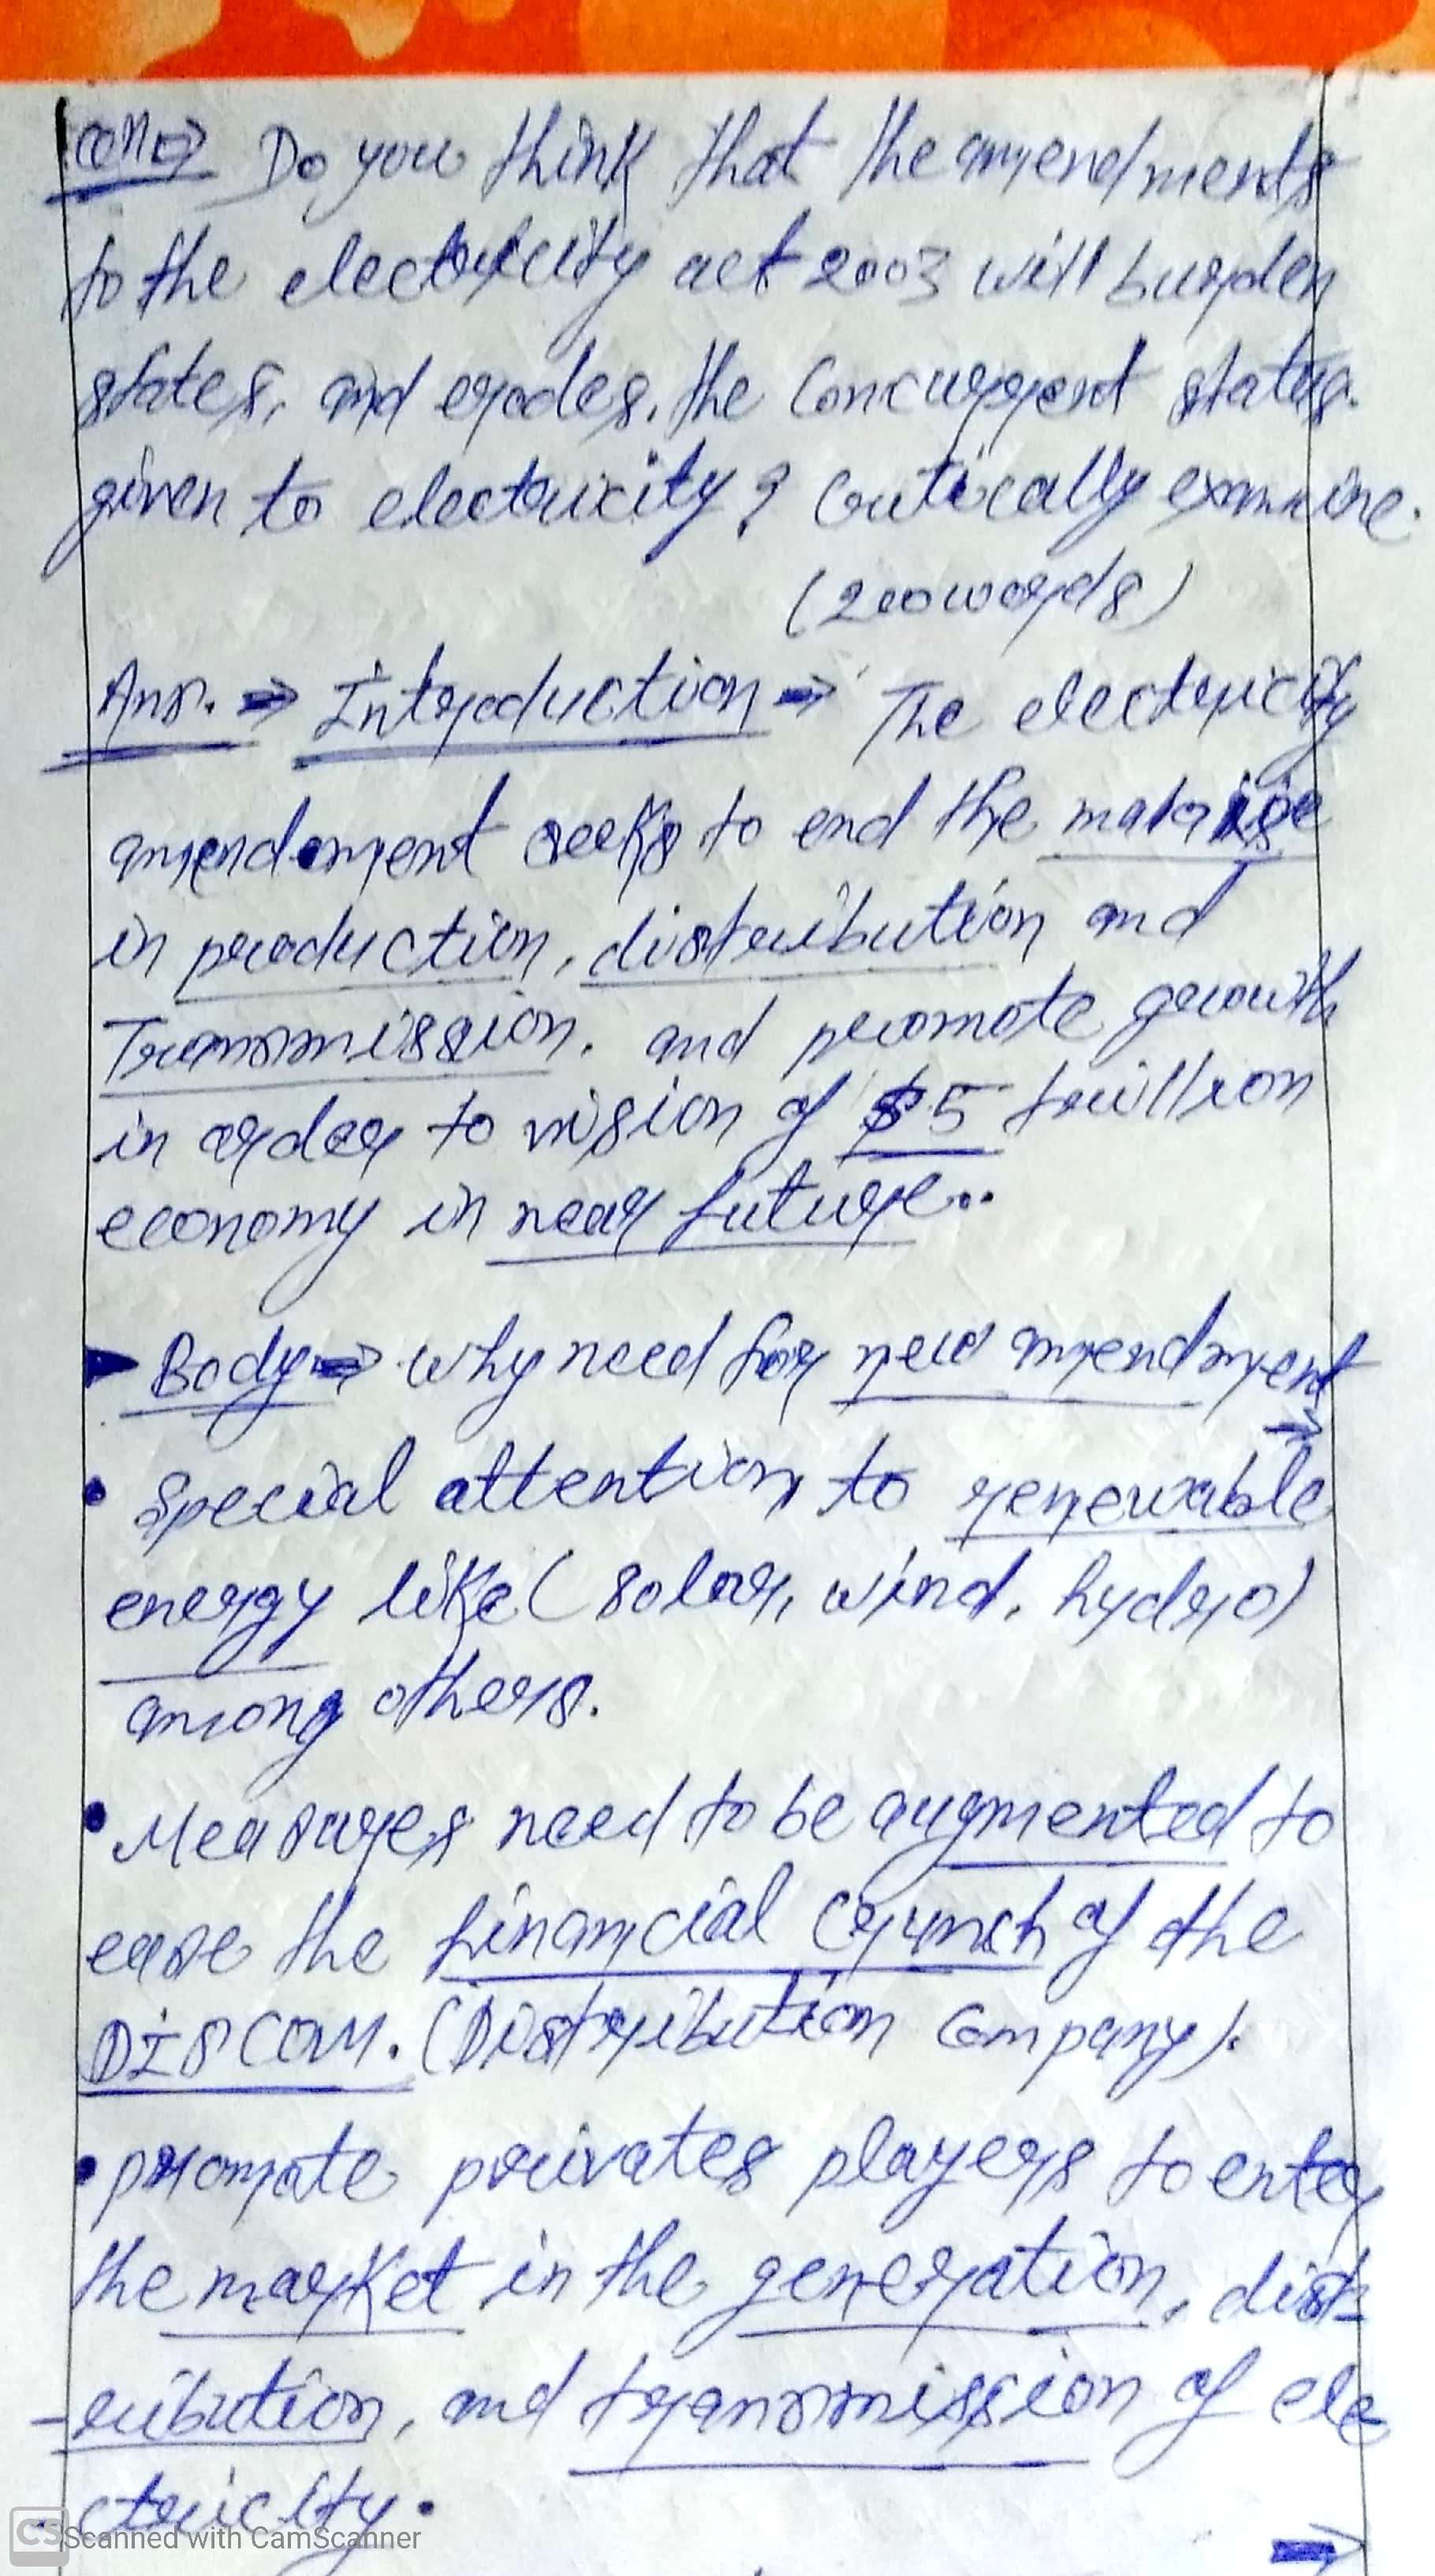 Do you think that the amendments
to the electricity act 2003 will burden
states, and erodes, the Concurrent status.
given to electricity? Critically examine.
(200 words)
Ans. ⇒ Introduction ⇒ The electricity
amendment seeks to end the malaise
in production, distribution and
Transmission. and promote growth
in order to vision of $5 trillion
economy in near future..
▶ Body ⇒ why need for new amendment
⇒
• Special attention to renewable
energy like (solar, wind, hydro)
among others.
• Measures need to be augmented to
ease the financial crunch of the
DISCOM. (Distribution Company).
• promote privates players to enter
the market in the generation, dist-
-ribution, and transmission of ele
ctricity.
→
CS Scanned with CamScanner